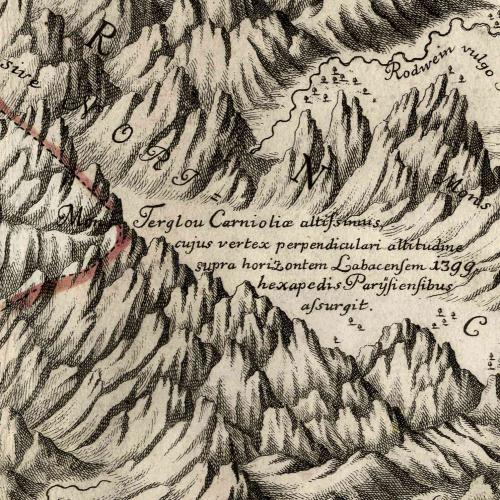 R
sive
Rodwein vulgo
W
O R I =
N I
Monis
Mons Terglou Carnioliæ altissimus,
cujus vertex perpendiculari altitudine
supra horizontem Labacensem 1399
hexapedis Parysiensibus
assurgit.
C